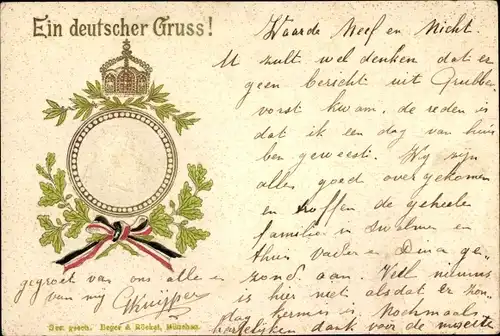 Ein deutscher Gruss!
Waarde Neef en Nicht.
U zult wel denken dat er
geen bericht uit Grubben-
vorst kwam, de reden is
dat ik een dag van huis
ben geweest. Wij zijn
alles goed overgekomen
en troffen de geheele
familie in Swalmen en
thuis Vader en Dina ge-
zond aan. Veel nieuws
is hier niet alsdat er zon-
dag kermis is Nochmaals
hartelijken dank voor de
gegroet van ons alle en
van mij Kuijper
Ges. gesch. Beger & Röckel, München.